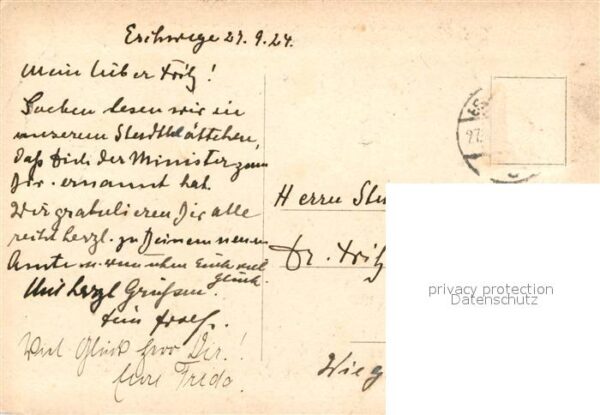 Eschwege 27.9.24.
Mein lieber Fritz!
Soeben lesen wir in
unserem Stadtblättchen,
daß Dich der Minister zum
Dir. ernannt hat.
Wir gratulieren Dir alle
recht herzl. zu Deinem neuen
Amte u. wünschen Euch viel
Glück.
Mit herzl Grüßen
Dein
Viel Glück Herr Dir.!
Frieda.
Herrn Stu
Dr. Fritz
Wieg
27.
privacy protection
Datenschutz